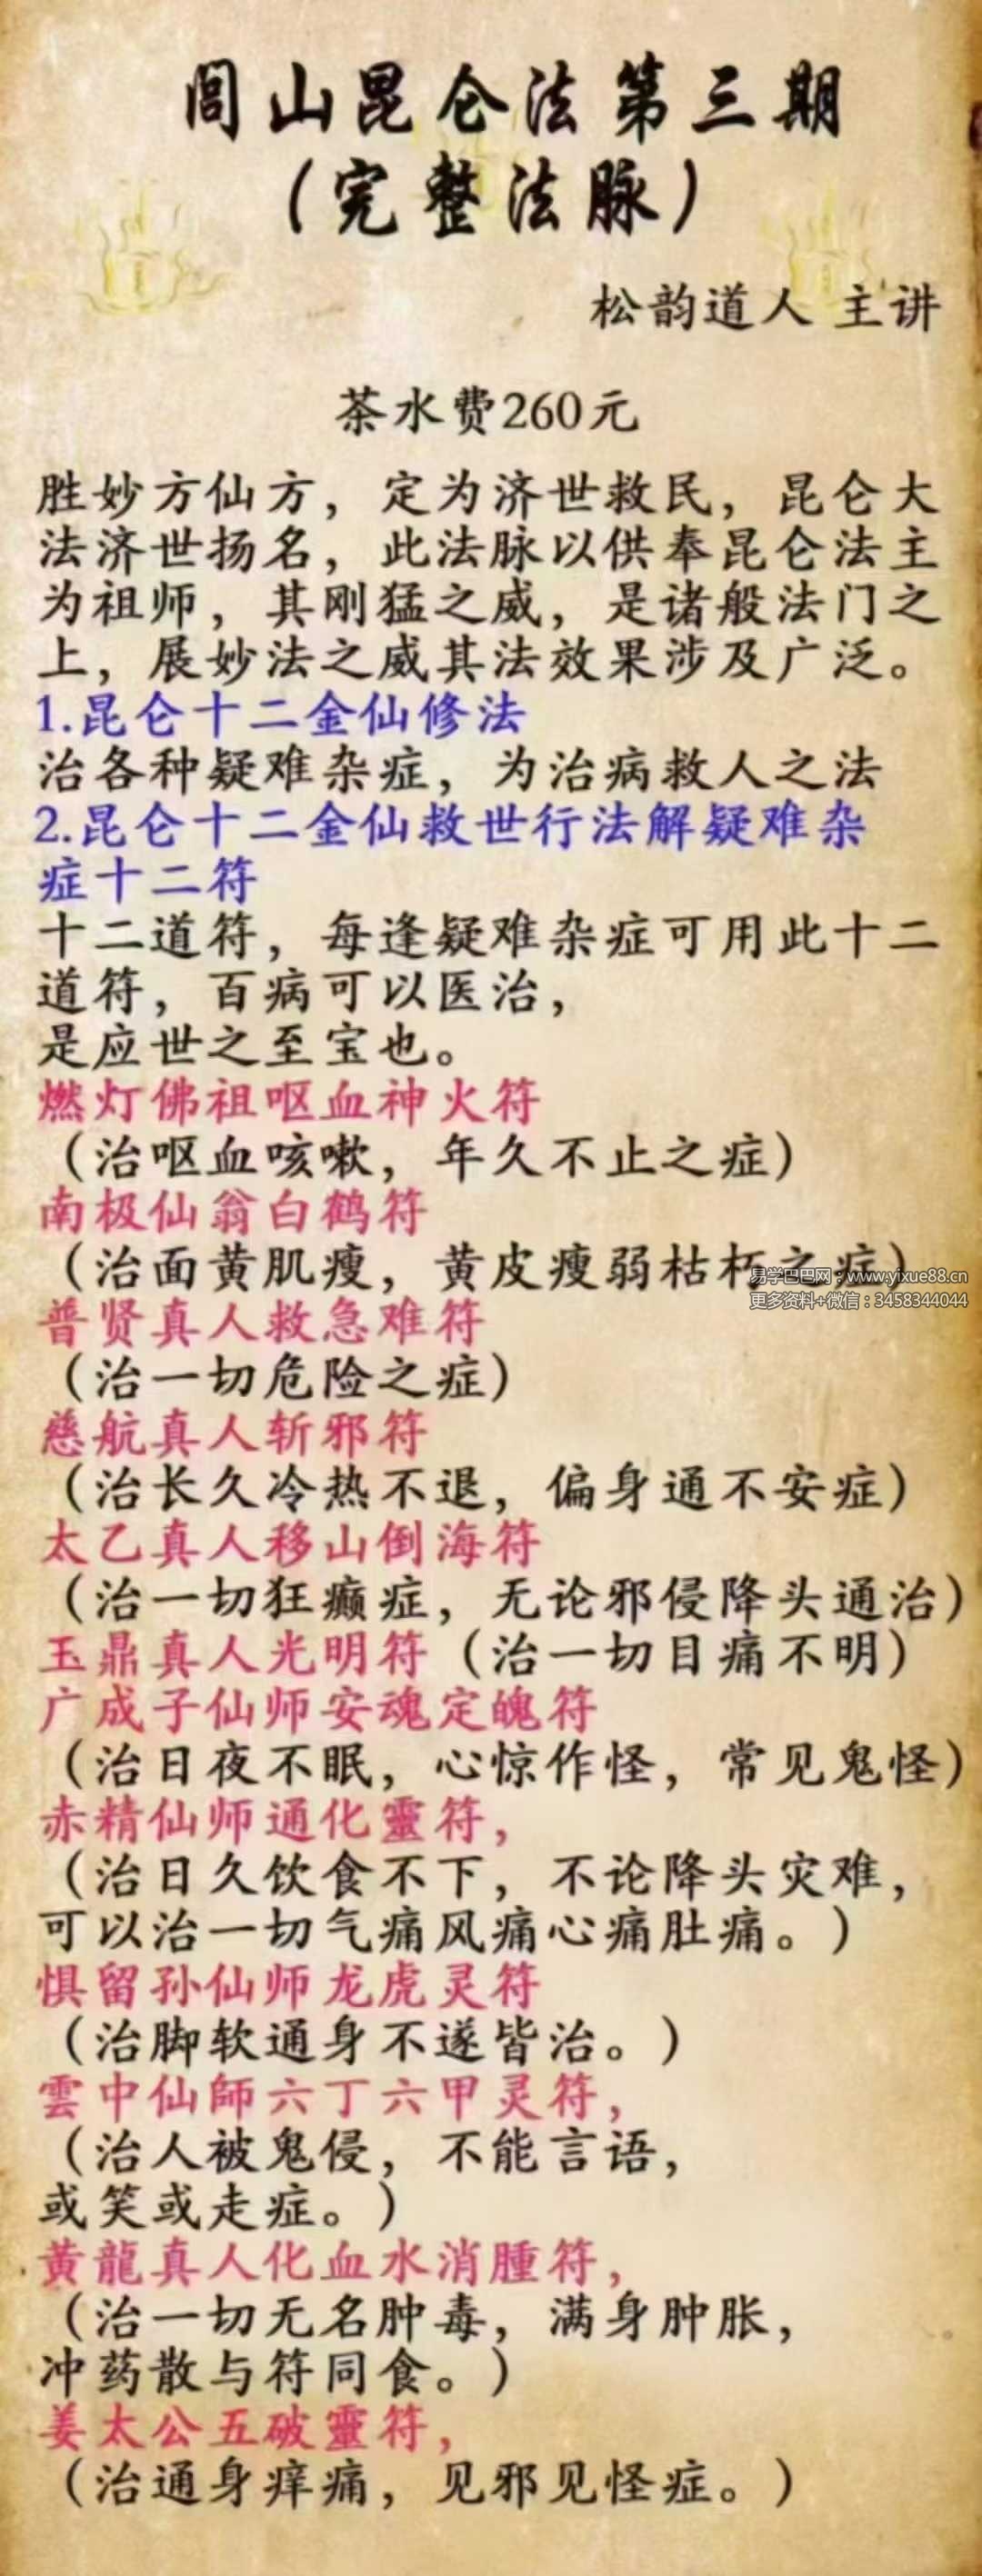 闾山昆仑法第三期
（完整法脉）
松韵道人 主讲
茶水费260元
胜妙方仙方，定为济世救民，昆仑大
法济世扬名，此法脉以供奉昆仑法主
为祖师，其刚猛之威，是诸般法门之
上，展妙法之威其法效果涉及广泛。
1.昆仑十二金仙修法
治各种疑难杂症，为治病救人之法
2.昆仑十二金仙救世行法解疑难杂
症十二符
十二道符，每逢疑难杂症可用此十二
道符，百病可以医治，
是应世之至宝也。
燃灯佛祖呕血神火符
（治呕血咳嗽，年久不止之症）
南极仙翁白鹤符
（治面黄肌瘦，黄皮瘦弱枯朽之症）
易学巴巴网：www.yixue88.cn
更多资料+微信：3458344044
普贤真人救急难符
（治一切危险之症）
慈航真人斩邪符
（治长久冷热不退，偏身通不安症）
太乙真人移山倒海符
（治一切狂癫症，无论邪侵降头通治）
玉鼎真人光明符（治一切目痛不明）
广成子仙师安魂定魄符
（治日夜不眠，心惊作怪，常见鬼怪）
赤精仙师通化靈符，
（治日久饮食不下，不论降头灾难，
可以治一切气痛风痛心痛肚痛。）
惧留孙仙师龙虎灵符
（治脚软通身不遂皆治。）
雲中仙師六丁六甲灵符，
（治人被鬼侵，不能言语，
或笑或走症。）
黄龍真人化血水消腫符，
（治一切无名肿毒，满身肿胀，
冲药散与符同食。）
姜太公五破靈符，
（治通身痒痛，见邪见怪症。）